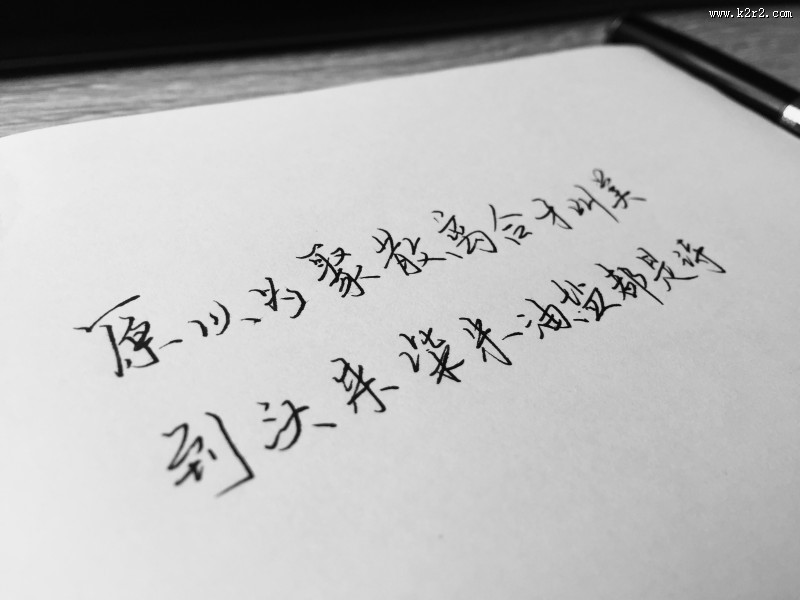 www.k2r2.com
原以为聚散离合才叫美
到头来柴米油盐都是诗